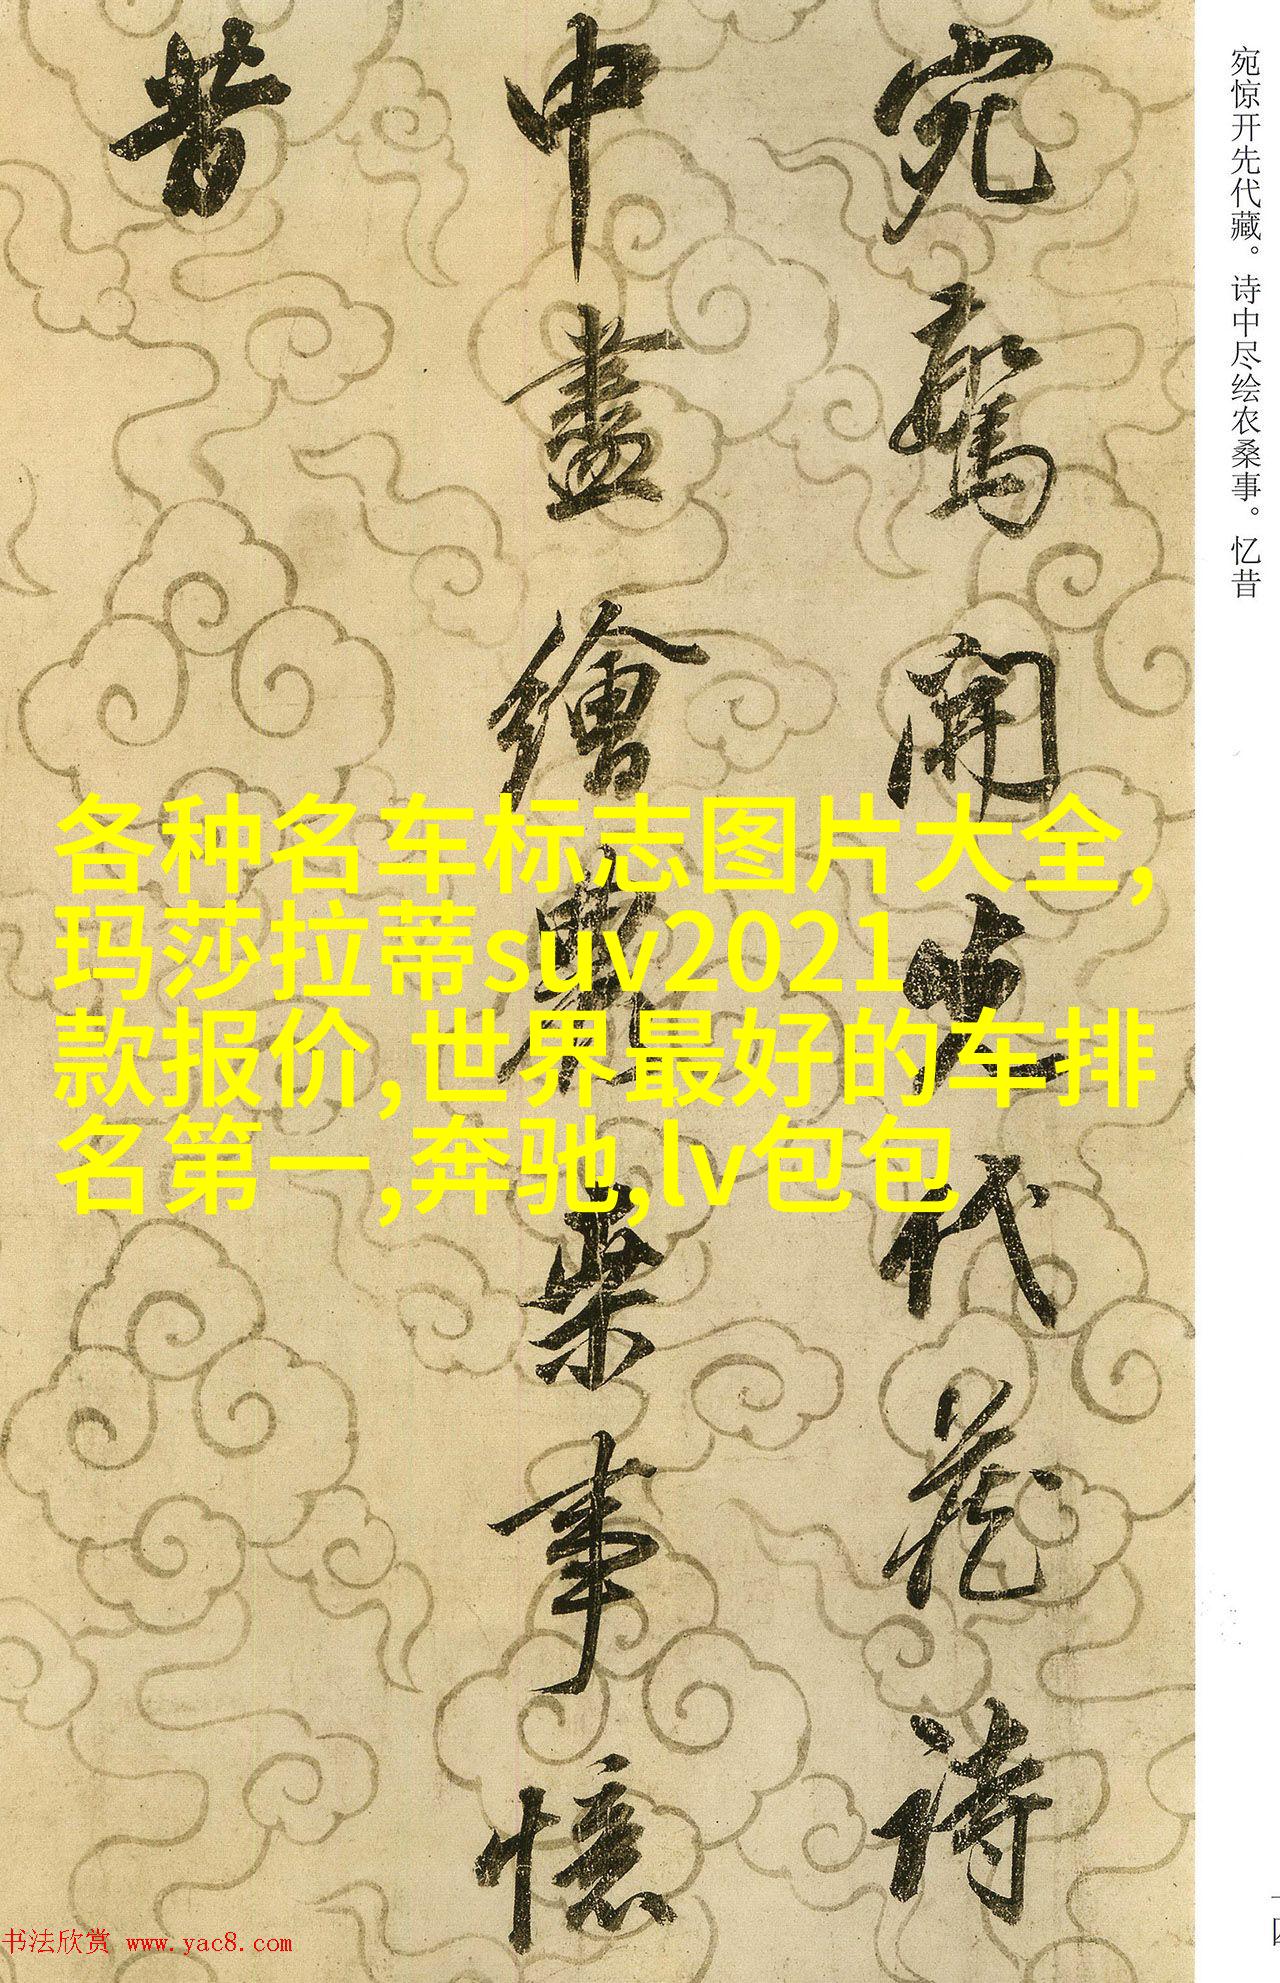 宛驚開先代藏詩
中盡繪農桒事憶
昔
宛惊开先代藏。诗中尽绘农桑事。忆昔
各种名车标志图片大全,
玛莎拉蒂suv2021
款报价,世界最好的车排
名第一,奔驰,lv包包
书法欣赏 www.yac8.com